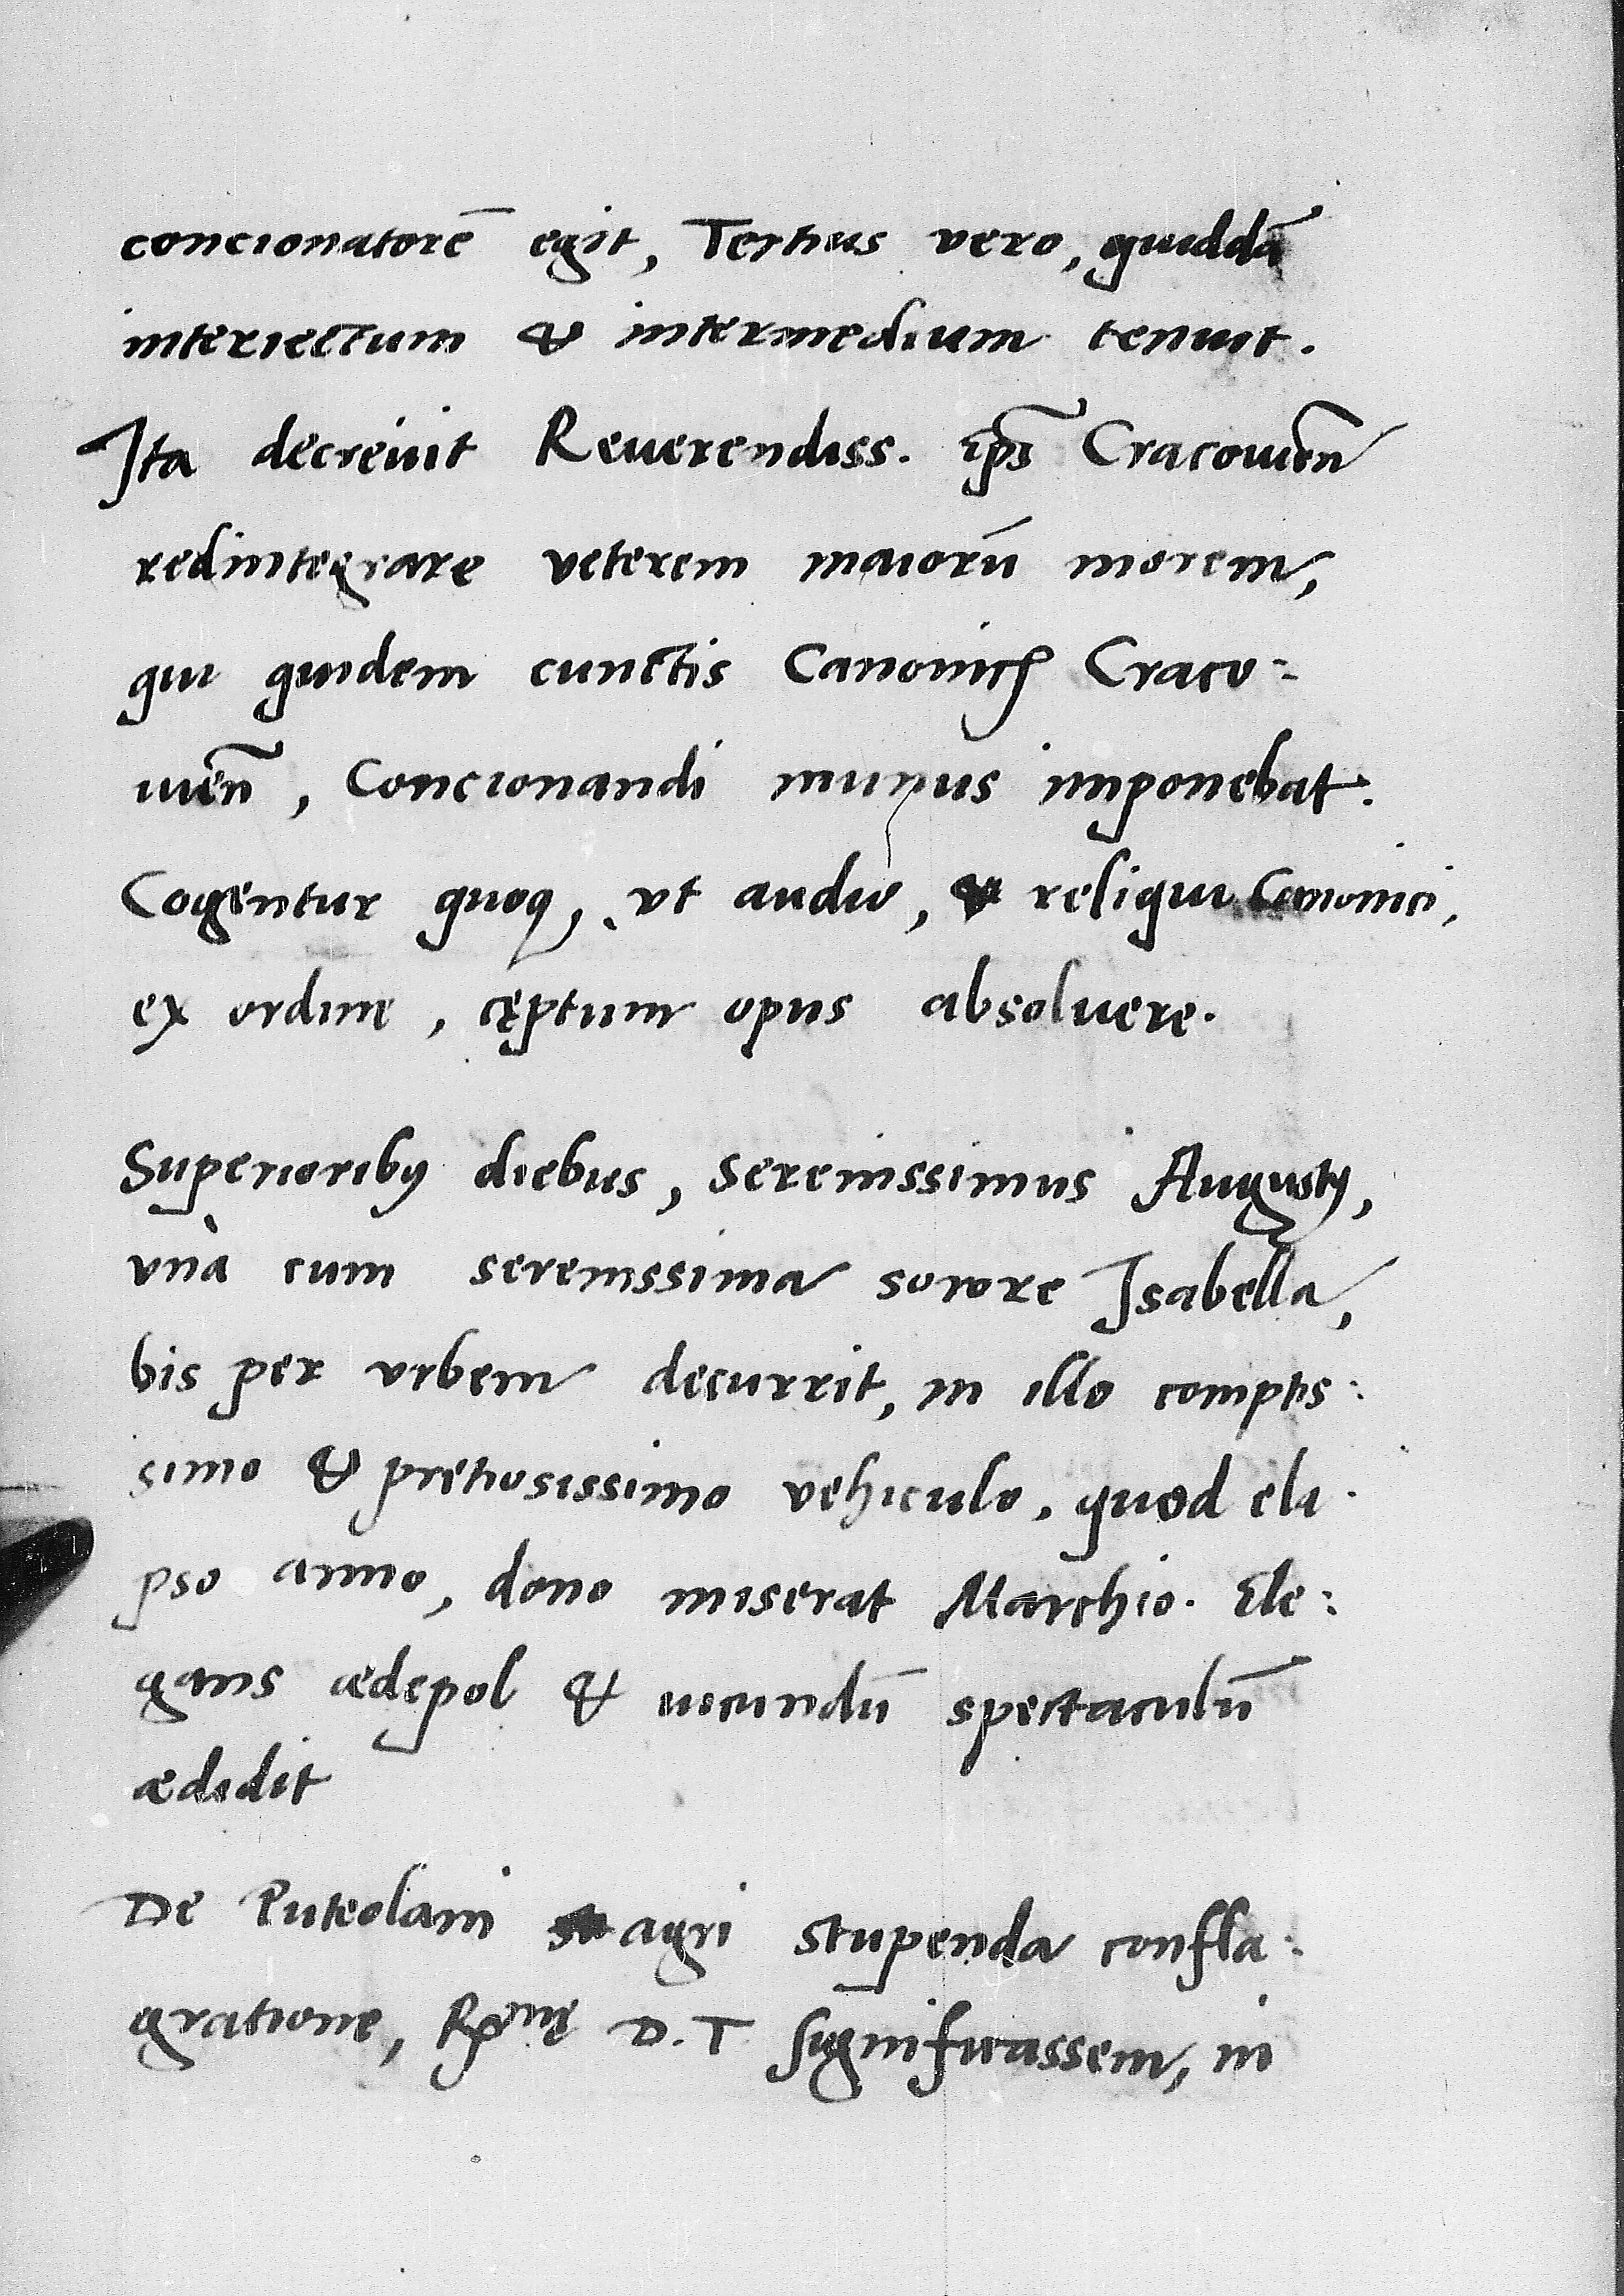 concionatorē egit, Tertius vero, quiddā
interiectum & intermedium tenuit.
Ita decreuit Reuerendiss. ep̄s Cracouien̄
redintegrare veterem maiorū morem,
qui quidem cunctis Canonicis Craco:
uien̄, Concionandi munus imponebat.
Cogentur quoq;, vt audio, reliqui Canonici,
ex ordine, cęptum opus absoluere.
Superioribus diebus, serenissimus Augustus,
vnà cum serenissima sorore Isabella,
bis per vrbem decurrit, in illo comptis:
simo & pretiosissimo vehiculo, quod ela
pso anno, dono miserat Marchio. Ele:
gans ædepol & iucundū spectaculū
ædidit
De Puteolani agri stupenda confla:
gratione, R͞mę D. T. significassem, ni